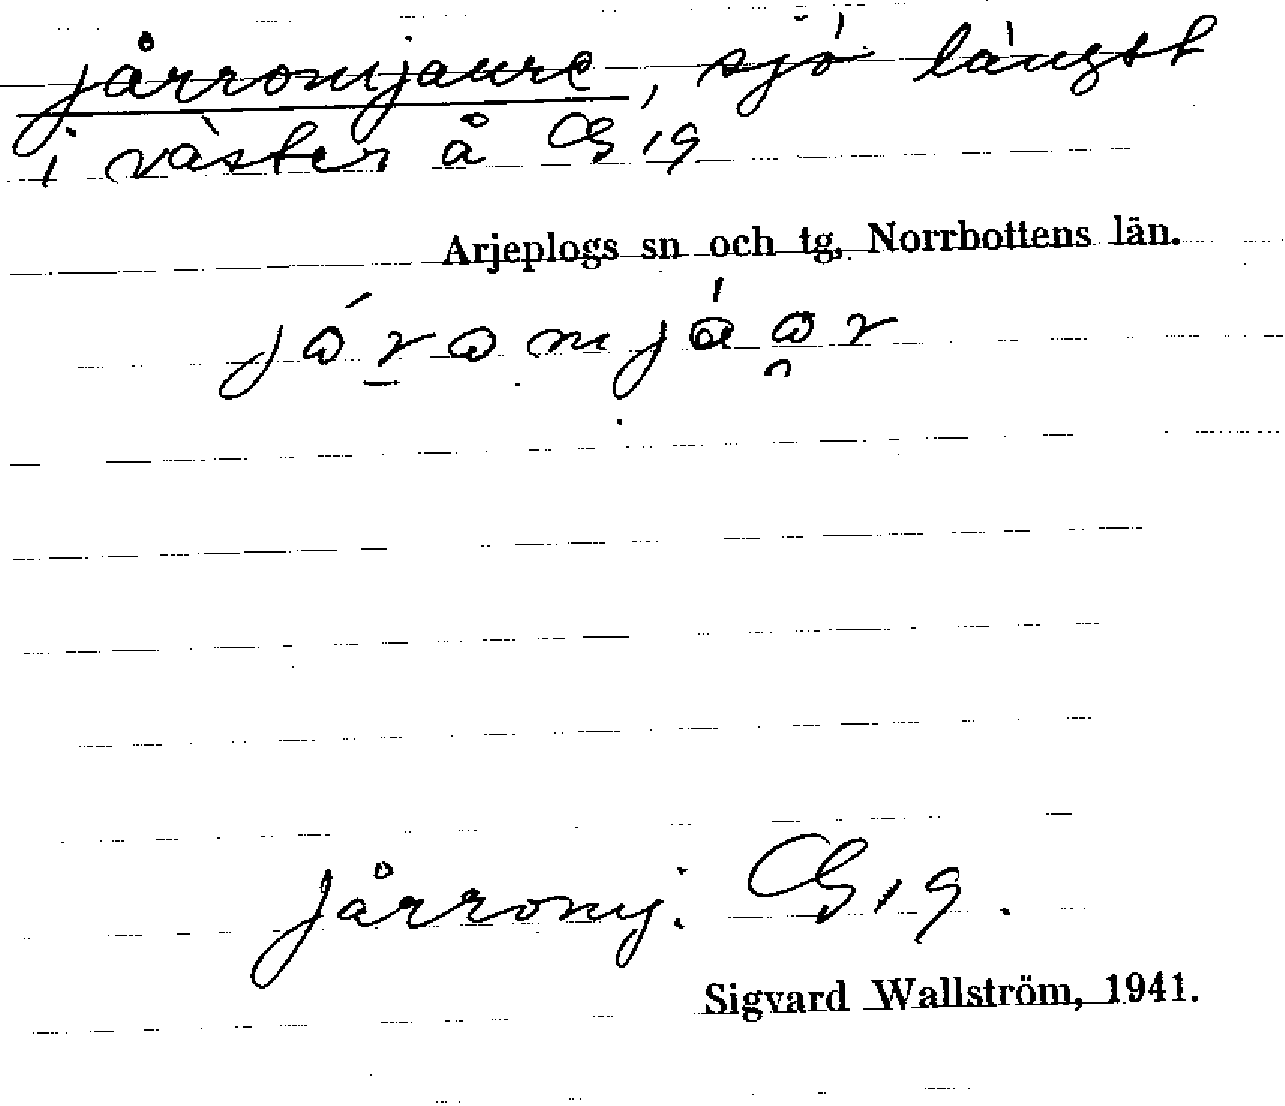 jårromjaure, sjö längst
i väster å GS 19
Arjeplogs sn och tg, Norrbottens län.
Jårromj. GS 19.
Sigvard Wallström, 1941.